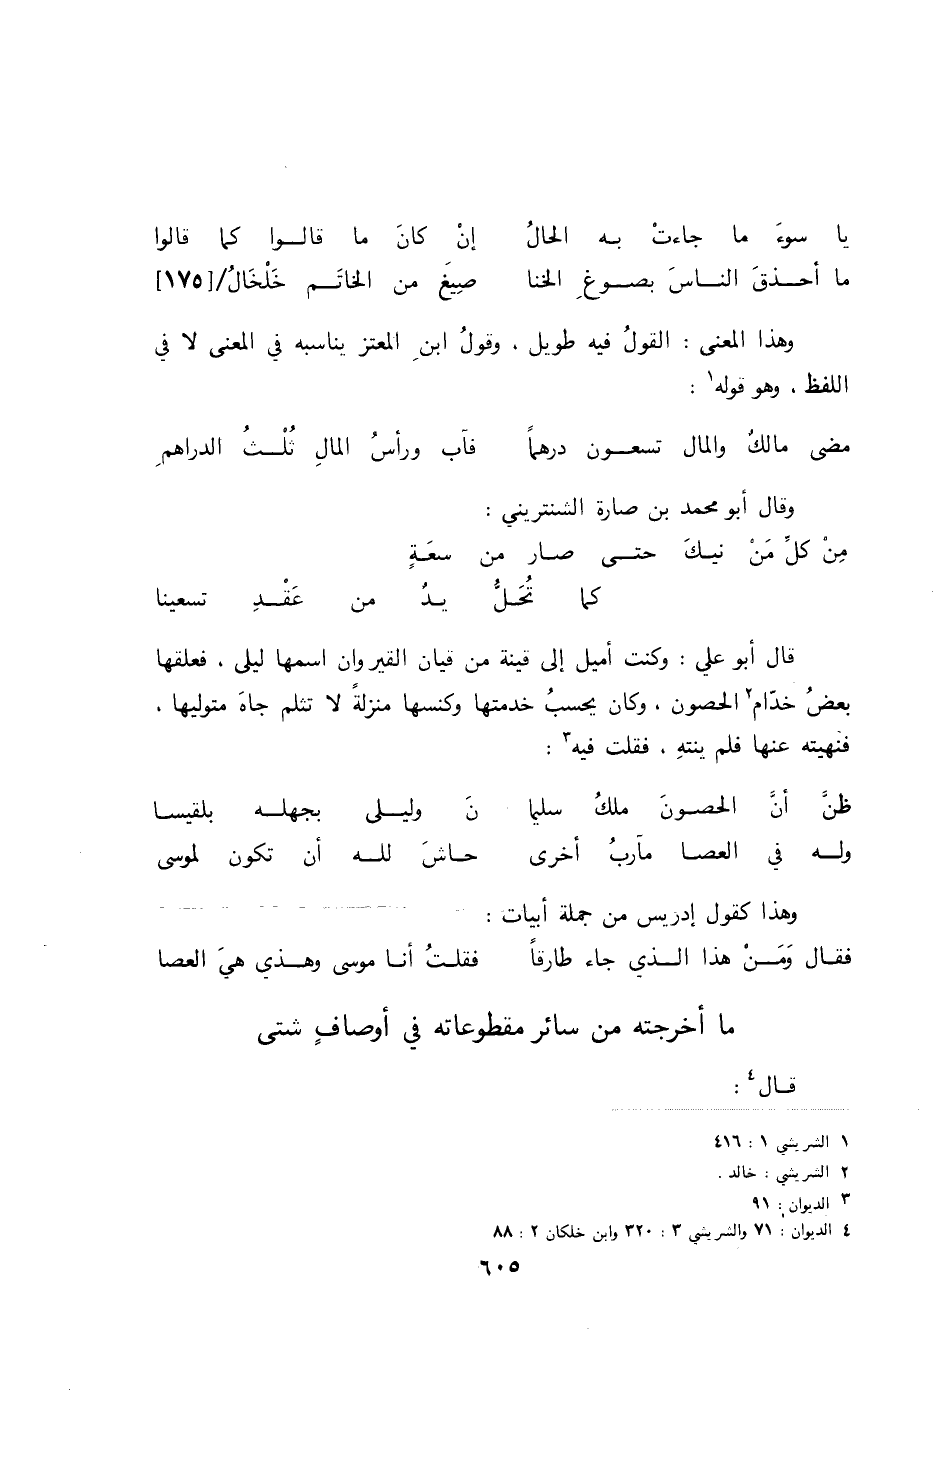 يا سوءَ ما جاءتْ به الحالُ إنْ كانَ ما قالوا كما قالوا
ما أحذقَ الناسَ بصوغِ الخنا صِيغَ من الخاتَم خَلْخَالُ/[١٧٥]
وهذا المعنى : القولُ فيه طويل ، وقولُ ابنِ المعتز يناسبه في المعنى لا في
اللفظ ، وهو قوله١ :
مضى مالكٌ والمال تسعون درهماً فآب ورأسُ المالِ ثُلْثُ الدراهمِ
وقال أبو محمد بن صارة الشنتريني :
مِنْ كلِّ مَنْ نيكَ حتى صار من سعَةٍ
كما تُحَلُّ يدٌ من عَقْدِ تسعينا
قال أبو علي : وكنت أميل إلى قينة من قيان القيروان اسمها ليلى ، فعلقها
بعضُ خدّام٢ الحصون ، وكان يحسبُ خدمتها وكنسها منزلةً لا تثلم جاهَ متوليها ،
فنهيته عنها فلم ينتهِ ، فقلت فيه٣ :
ظنَّ أنَّ الحصونَ ملكُ سليما نَ وليلى بجهله بلقيسا
وله في العصا مآربُ أخرى حاشَ لله أن تكون لموسى
وهذا كقول إدريس من جملة أبيات :
فقال وَمَنْ هذا الذي جاء طارقاً فقلتُ أنا موسى وهذي هيَ العصا
ما أخرجته من سائر مقطوعاته في أوصافٍ شتى
قال٤ :
١ الشريشي ١ : ٤١٦
٢ الشريشي : خالد .
٣ الديوان : ٩١
٤ الديوان : ٧١ والشريشي ٣ : ٣٢٠ وابن خلكان ٢ : ٨٨
٦٠٥